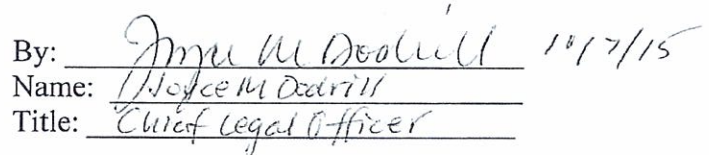 By: Joyce M Dodrill 10/7/15
Name: Joyce M Dodrill
Title: Chief Legal Officer